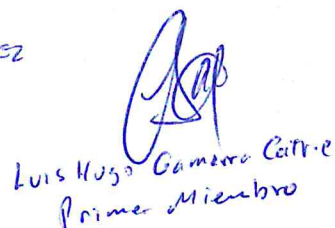 EZ
Luis Hugo Gamarra
Primer Miembro